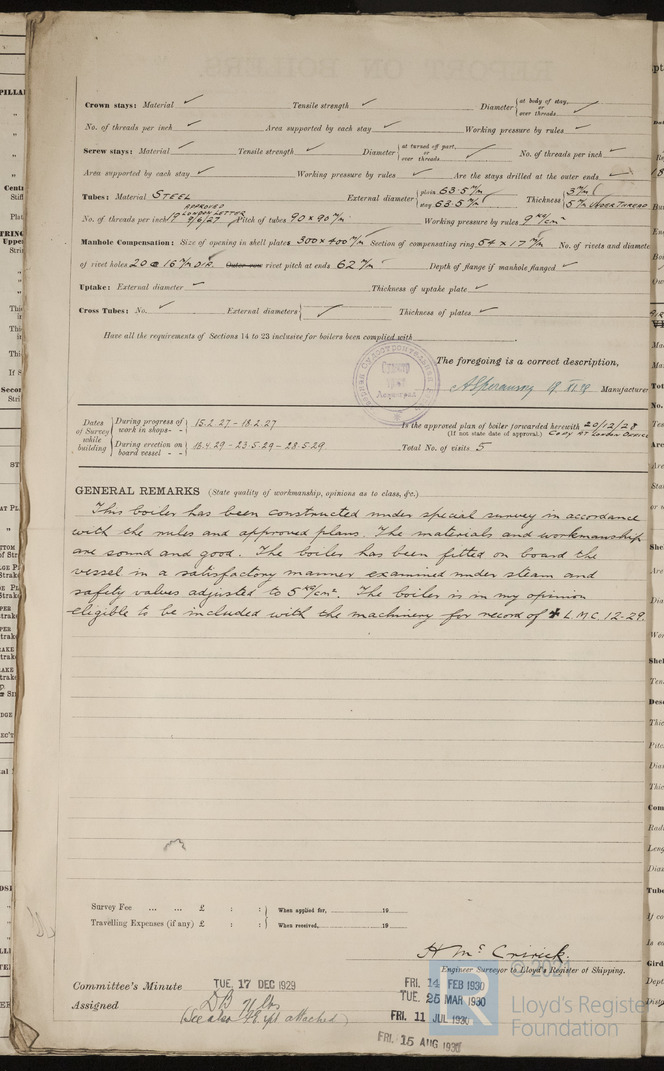 Crown stays: Material ✓ Tensile strength ✓ Diameter { at body of stay, or over threads ✓
No. of threads per inch ✓ Area supported by each stay ✓ Working pressure by rules ✓
Screw stays: Material ✓ Tensile strength ✓ Diameter { at turned off part, or over threads ✓ No. of threads per inch ✓
Area supported by each stay ✓ Working pressure by rules ✓ Are the stays drilled at the outer ends ✓
Tubes: Material STEEL External diameter { plain 63.5 m/m stay 63.5 m/m Thickness { 3 m/m 5 m/m UNDER THREAD
APPROVED LONDON LETTER 9/6/27
No. of threads per inch Pitch of tubes 90 x 90 m/m Working pressure by rules 9 kg/cm²
Manhole Compensation: Size of opening in shell plates 300 x 400 m/m Section of compensating ring 54 x 17 m/m No. of rivets and diameter
of rivet holes 20 @ 16 m/m DIA. Outer row rivet pitch at ends 62 m/m Depth of flange if manhole flanged ✓
Uptake: External diameter ✓ Thickness of uptake plate ✓
Cross Tubes: No. ✓ External diameters { ✓ Thickness of plates ✓
Have all the requirements of Sections 14 to 23 inclusive for boilers been complied with
The foregoing is a correct description,
Manufacturer
Dates of Survey while building { During progress of work in shops - - 15.2.27 - 18.2.27
During erection on board vessel - - 16.4.29 - 23.5.29 - 28.5.29
Is the approved plan of boiler forwarded herewith 20/12/28
(If not state date of approval.) COPY AT LONDON OFFICE
Total No. of visits 5
GENERAL REMARKS (State quality of workmanship, opinions as to class, &c.)
This boiler has been constructed under special survey in accordance
with the rules and approved plans. The materials and workmanship
are sound and good. The boiler has been fitted on board the
vessel in a satisfactory manner examined under steam and
safety valves adjusted to 5 kg/cm². The boiler is in my opinion
eligible to be included with the machinery for record of + L M C 12-29.
Survey Fee ... ... £ : : } When applied for, 19
Travelling Expenses (if any) £ : : } When received, 19
H Mc Cririck.
Engineer Surveyor to Lloyd's Register of Shipping.
Committee's Minute TUE. 17 DEC 1929 FRI. 14 FEB 1930
TUE. 25 MAR 1930
Assigned DB 71 lbs
(See also attached) FRI. 11 JUL 1930
FRI. 15 AUG 1930
© 2021
Lloyd's Register
Foundation